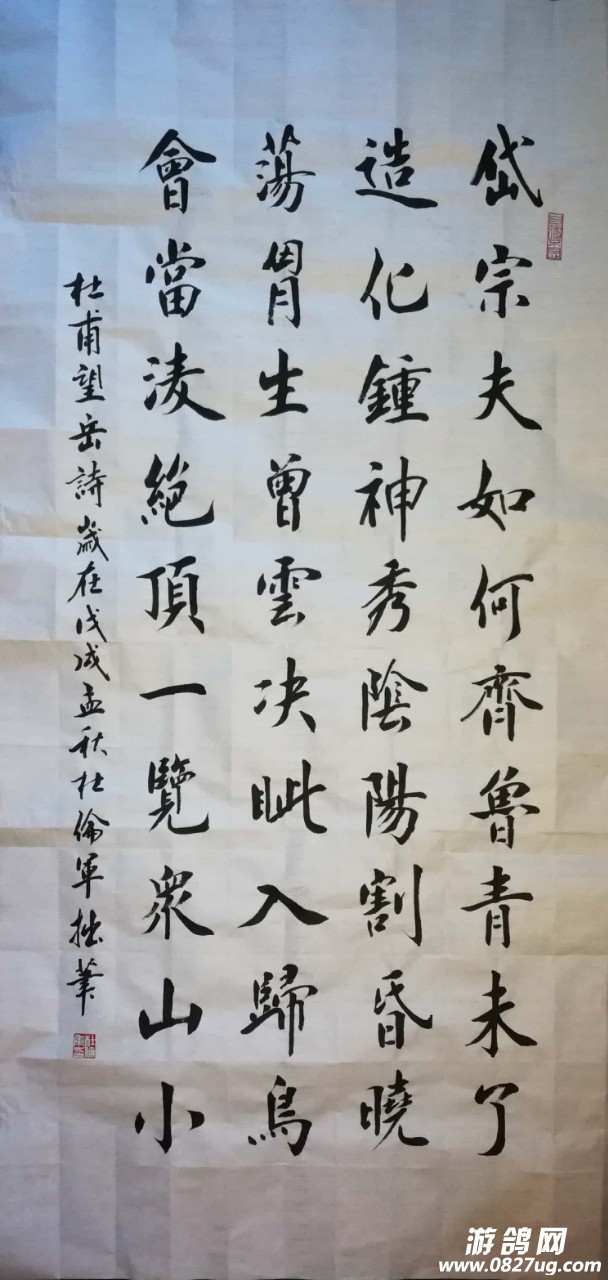 岱宗夫如何齊魯青未了
造化鍾神秀陰陽割昏曉
蕩胷生曾雲决眦入歸鳥
會當淩絕頂一覽衆山小
杜甫望岳詩歲在戊戌孟秋杜倫軍拙筆
游鸽网
www.0827ug.com